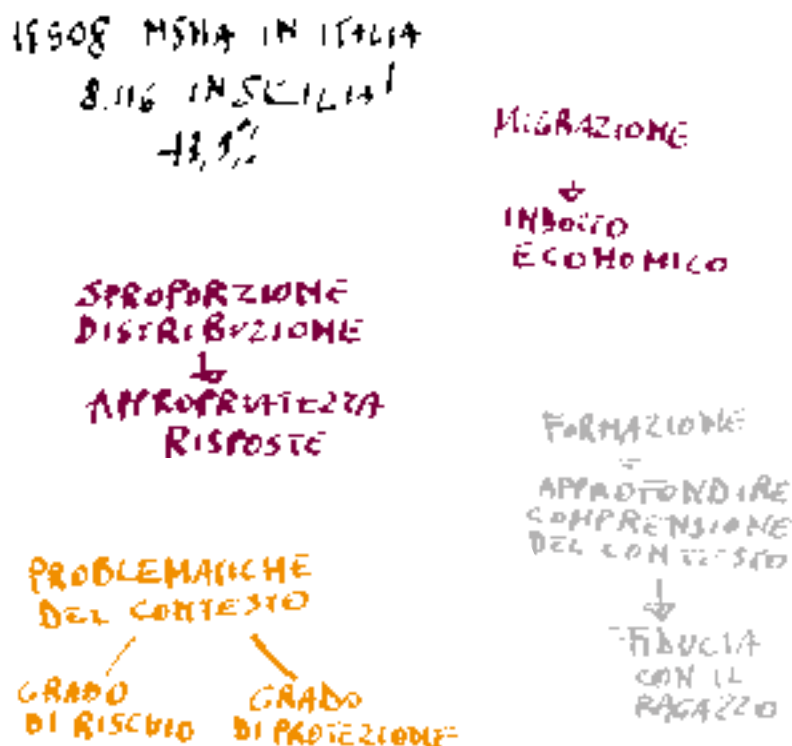 MSNA IN ITALIA
8.116 IN SCILIA
MIGRAZIONE
INDOTTO
ECONOMICO
SPROPORZIONE
DISTRIBUZIONE
APPROPRIATEZZA
RISPOSTE
FORMAZIONE
APPROFONDIRE
COMPRENSIONE
DEL CONTESTO
FIDUCIA
CON IL
RAGAZZO
PROBLEMATICHE
DEL CONTESTO
GRADO
DI RISCHIO
GRADO
DI PROTEZIONE